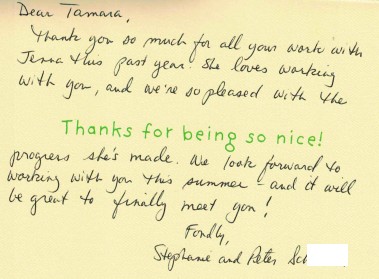 Dear Tamara,
Thank you so much for all your work with
Jenna this past year. She loves working
with you, and we're so pleased with the
Thanks for being so nice!
progress she's made. We look forward to
working with you this summer - and it will
be great to finally meet you!
Fondly,
Stephanie and Peter Sch